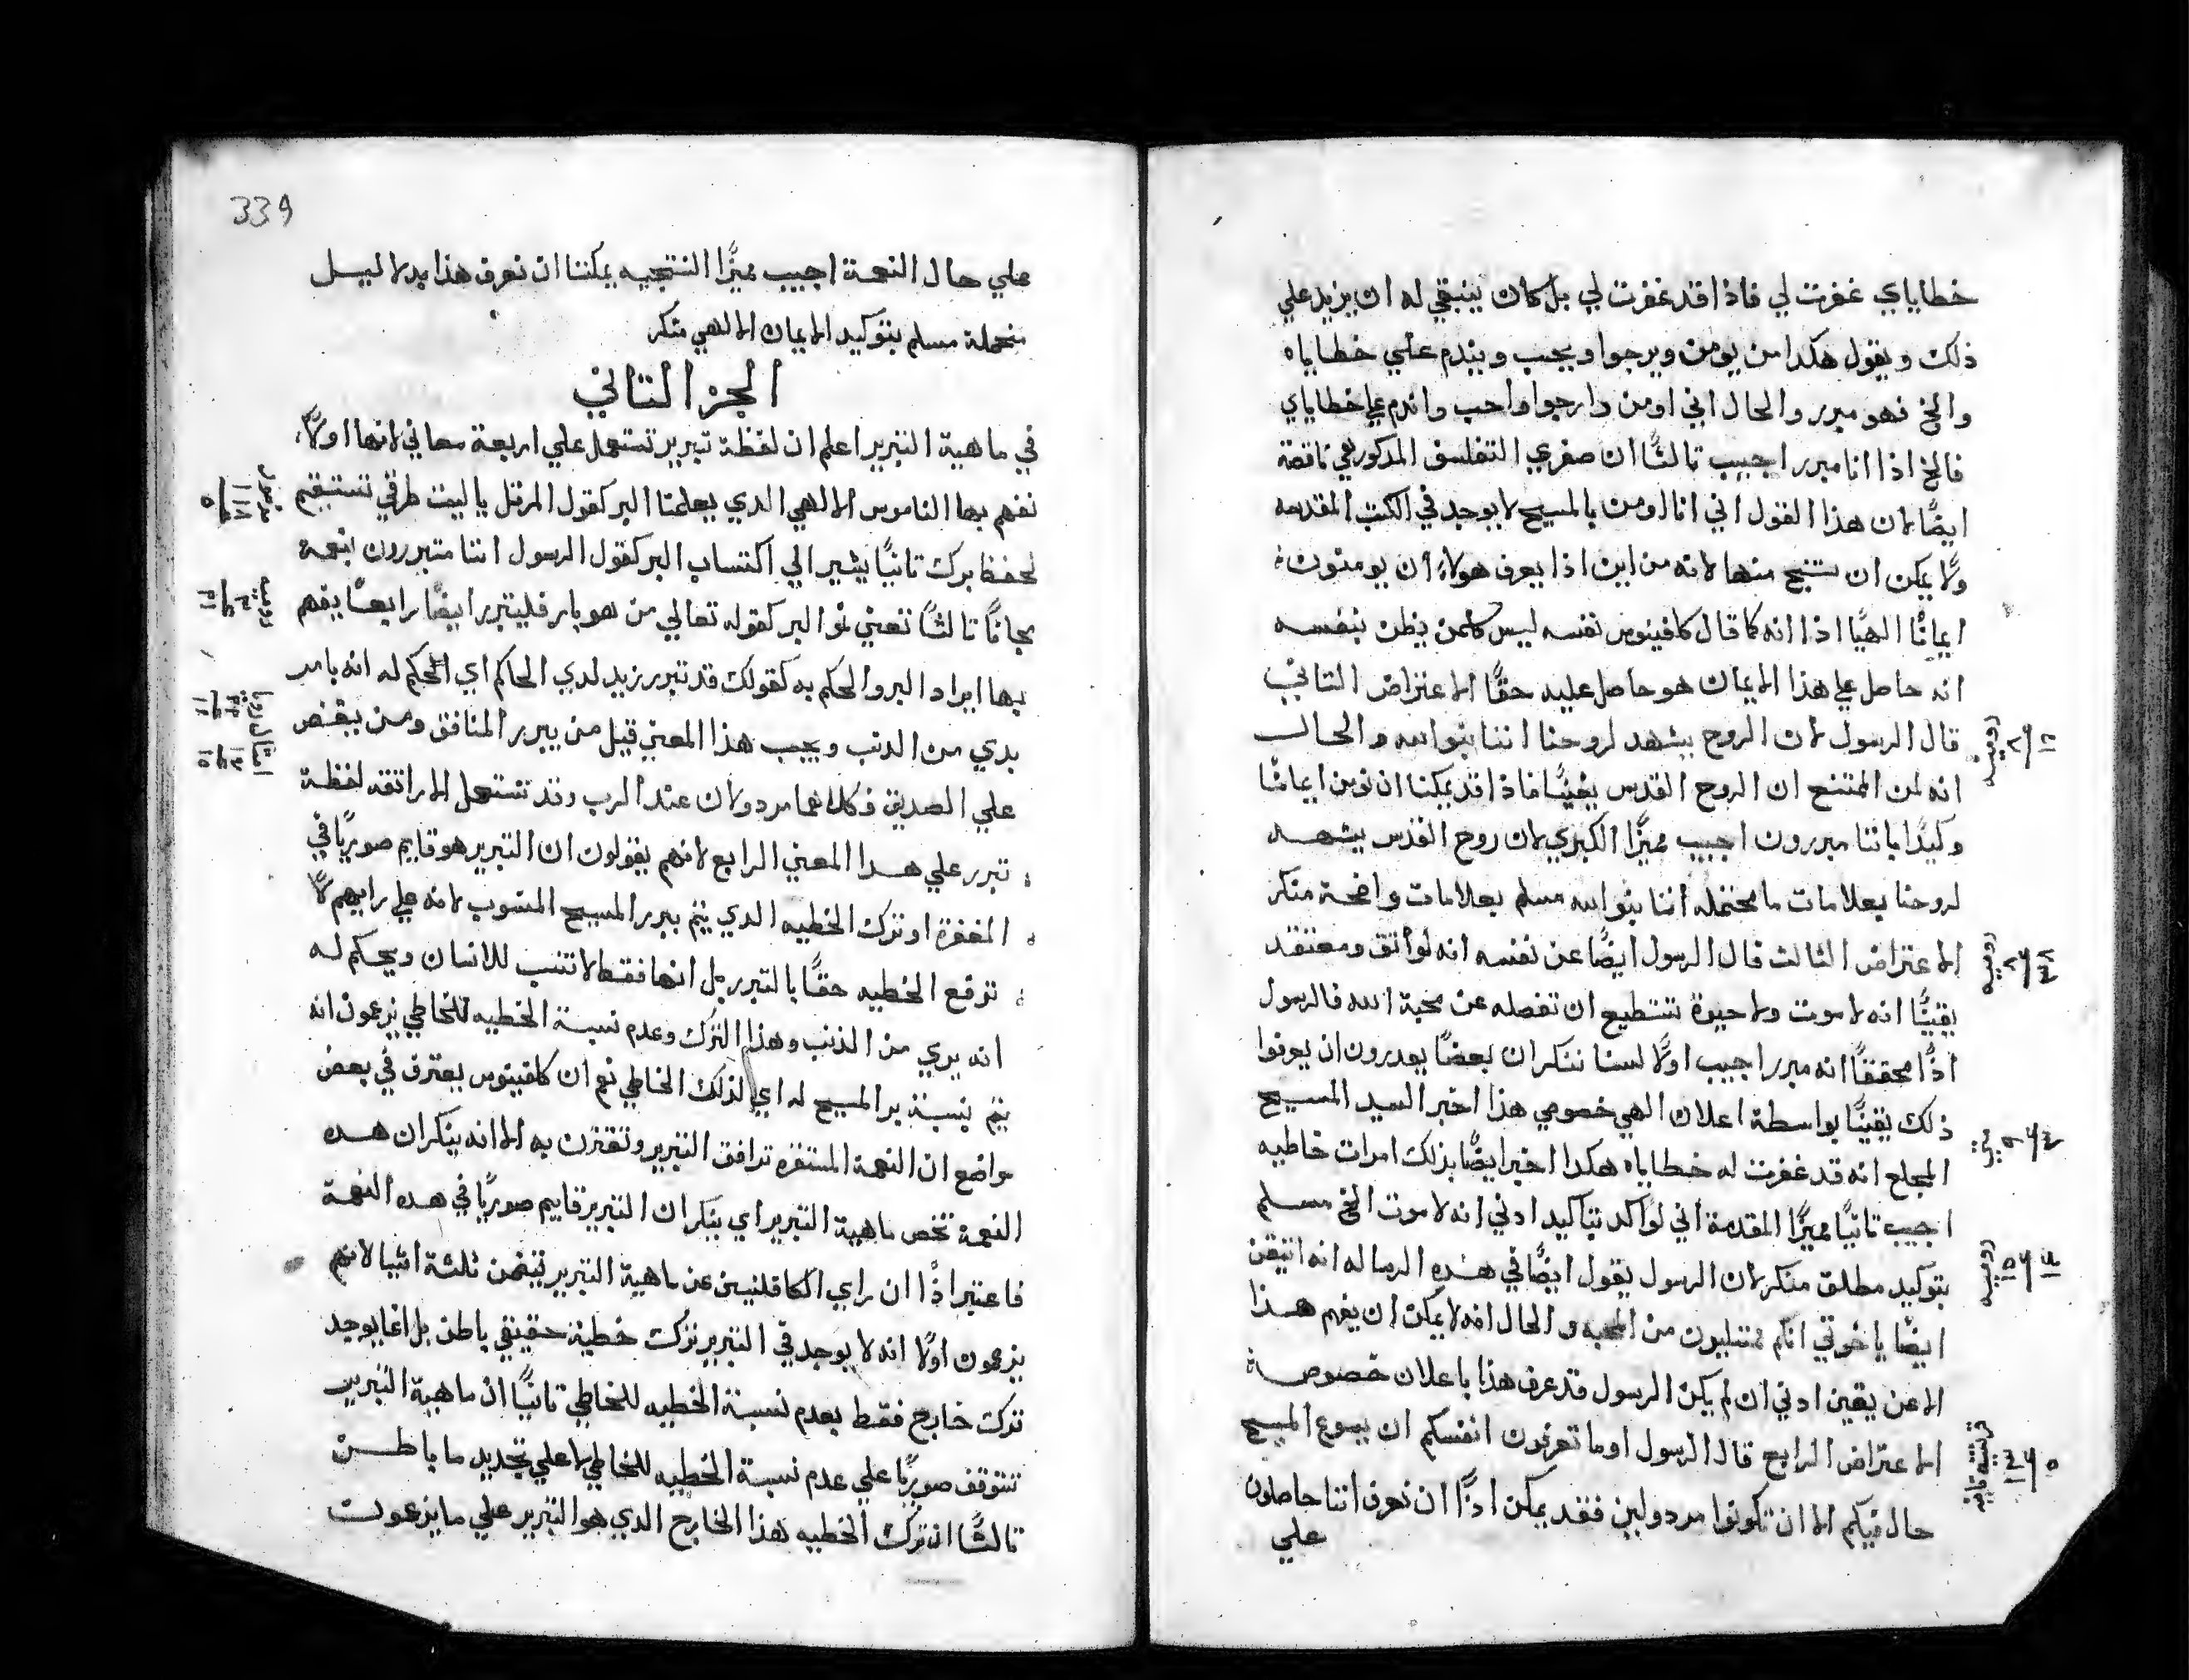 خطاياي غفرت لي فاذا قد غفرت لي بل كان ينبغي له ان يزيد علي
ذلك ويقول هكدا من يومن ويرجوا ويحب ويندم علي خطاياه
والخ فهو مبرر والحال اني اومن وارجوا واحب واندم علي خطاياي
فالخ اذا انا مبرر اجيب تالثًا ان صغري التفلسف المدكور هي ناقصة
ايضًا لان هذا القول اني انا اومن بالمسيح لا يوجد في الكتب المقدسه
ولا يمكن ان تستنتج منها لانه من اين اذا يعرف هولاء ان يومنون
ايمانًا الهيًا اذا انه كما قال كلفينوس نفسه ليس كلمن يظن بنفسه
انه حاصل علي هذا الايمان هو حاصل عليه حقًا الاعتراض التاني
قال الرسول لان الروح يشهد لروحنا اننا بنوا الله والحال
انه لمن الممتنع ان الروح القدس يغشنا فاذا قد يمكنا ان نومن ايمانًا
وكيدًا باننا مبررون اجيب مميزًا الكبري لان روح القدس يشهد
لروحنا بعلامات ما محتمله اننا بنوا الله مسلم بعلامات واضحة منكر
الاعتراض الثالث قال الرسول ايضًا عن نفسه انه لواثق ومعتقد
يقينًا انه لا موت ولا حيوة تستطيع ان تفصله عن محبة الله فالرسول
اذًا محققًا انه مبرر اجيب اولًا لسنا ننكر ان بعضًا يقدرون ان يعرفوا
ذلك يقينًا بواسطة اعلان الهي خصوصي هذا اخبر السيد المسيح
المخلع انه قد غفرت له خطاياه هكدا اخبر ايضًا بذلك امرات خاطيه
اجيب تانيًا مميزًا المقدمة اني لواكد بتاكيد ادبي انه لا موت الخ مسلم
بتوكيد مطلق منكر لان الرسول يقول ايضًا في هذه الرساله انه اتيقن
ايضًا يا خوتي انكم ممتليون من المحبه والحال انه لا يمكن ان يفهم هذا
الا عن يقين ادبي ان لم يكن الرسول قد عرف هذا باعلان خصوص
الاعتراض الرابع قال الرسول اوما تعرفون انفسكم ان يسوع المسيح
حال فيكم الا ان تكونوا مردولين فقد يمكن اذًا ان نعرف اننا حاصلون
علي
روميه
٨
١٦
روميه
٨
٣٨
متي
٩
روميه
١٥
١٤
قرنتيه تانيه
١٣
٥
339
علي حال النعمة اجيب مميزًا النتيجيه يمكننا ان نعرف هذا بدلاليل
محتملة مسلم بتوكيد الايمان الالهي منكر
الجزء التاني
في ماهية التبرير اعلم ان لفظة تبرير تستعمل علي اربعة معاني لانها اولًا
نفهم بها الناموس الالهي الدي يعلمنا البر كقول المرتل يا ليت طرقي تستقيم
لحفظ برك تانيًا يشير الي اكتساب البر كقول الرسول اننا متبررون بنعمة
مجانًا تالثًا تعني نمو البر كقوله تعالي من هو بار فليتبرر ايضًا رابعًا يفهم
بها ايراد البر والحكم به كقولك قد تبرر زيد لدي الحاكم اي الحكم له انه بامر
بري من الدنب وبحسب هذا المعني قيل من يبرر المنافق ومن يبغض
علي الصديق فكلاهما مردولان عند الرب وقد تستعمل الاراتقه لفظة
تبرر علي هدا المعني الرابع لانهم يقولون ان التبرير هو قايم صوريًا في
المغفرة او ترك الخطيه الدي يتم ببر المسيح المنسوب لانه علي رايهم لا
ترفع الخطيه حقًا بالتبرر بل انها فقط لا تنسب للانسان ويحكم له
انه بري من الذنب وهذا الترك وعدم نسبة الخطيه للخاطي يزعمون انه
يتم بنسبة بر المسيح له اي لذلك الخاطي نعم ان كلفينوس يعترف في بعض
مواضع ان النعمة المستقره ترافق التبرير وتقترن به الا انه ينكر ان هده
النعمة تخص ماهية التبرير اي ينكر ان التبرير قايم صوريًا في هده النعمة
فاعتبر اذًا ان راي الكلفينيين عن ماهية التبرير يتضمن ثلثة اشيا لانهم
يزعمون اولًا انه لا يوجد في التبرير ترك خطية حقيقي باطن بل انما يوجد
ترك خارج فقط بعدم نسبة الخطيه للخاطي تانيًا ان ماهية التبرير
تتوقف صوريًا علي عدم نسبة الخطيه للخاطي لا علي تجديد ما باطن
تالثًا ان ترك الخطيه هذا الخارج الدي هو التبرير علي ما يزعمون
مزمور
١١٨
٥
روميه
٣
٢٤
امثال
١٧
١٥